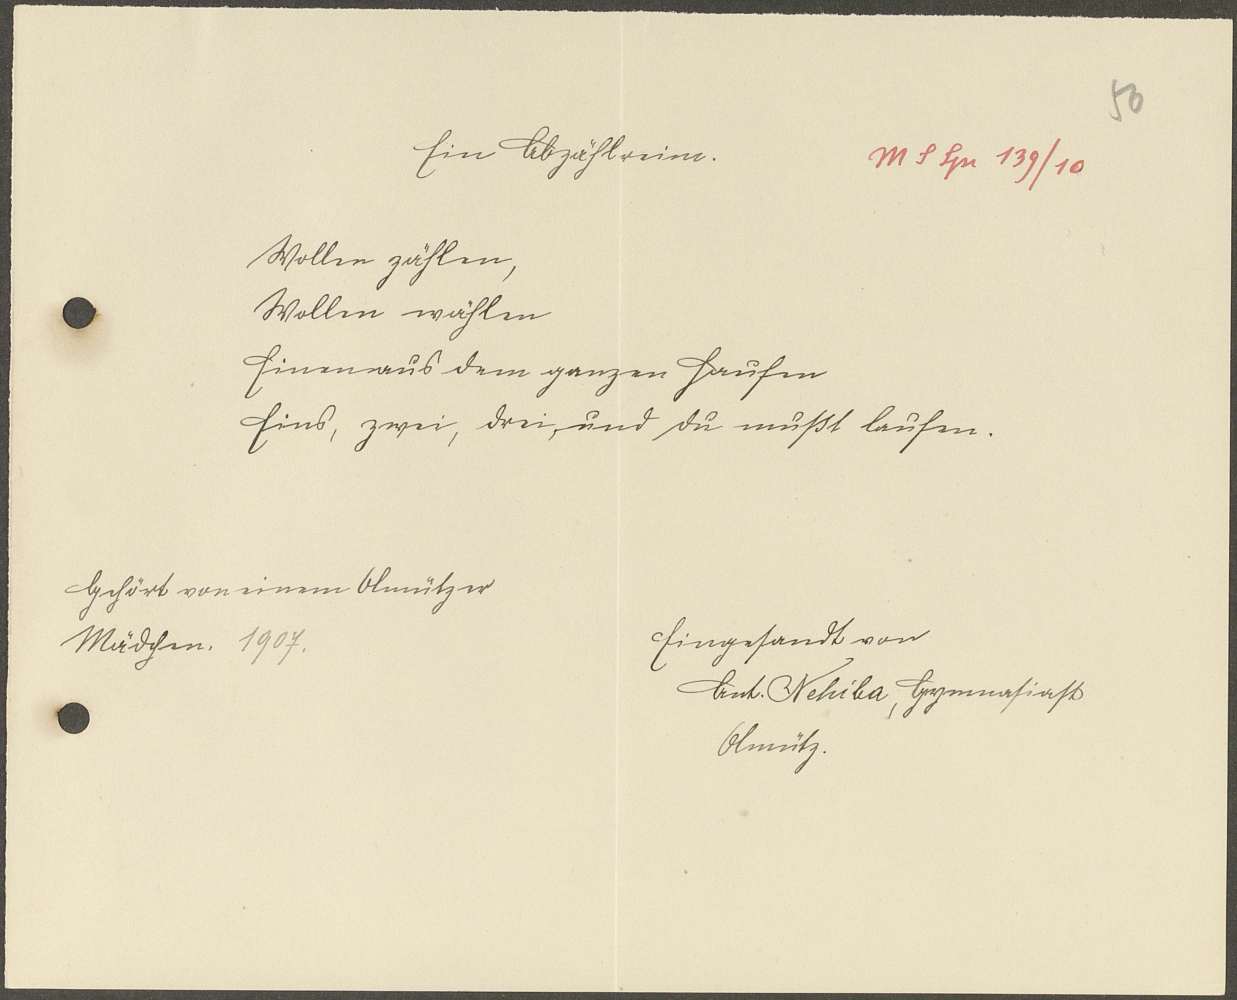 50
Ein Abzählreim.
M S Spr 139/10
Wollen zählen,
Wollen wählen
Einen aus dem ganzen Haufen
Eins, zwei, drei, und du mußt laufen.
Gehört von einem Olmützer
Mädchen. 1907.
Eingesandt von
Ant. Nehiba, Gymnasiast
Olmütz.